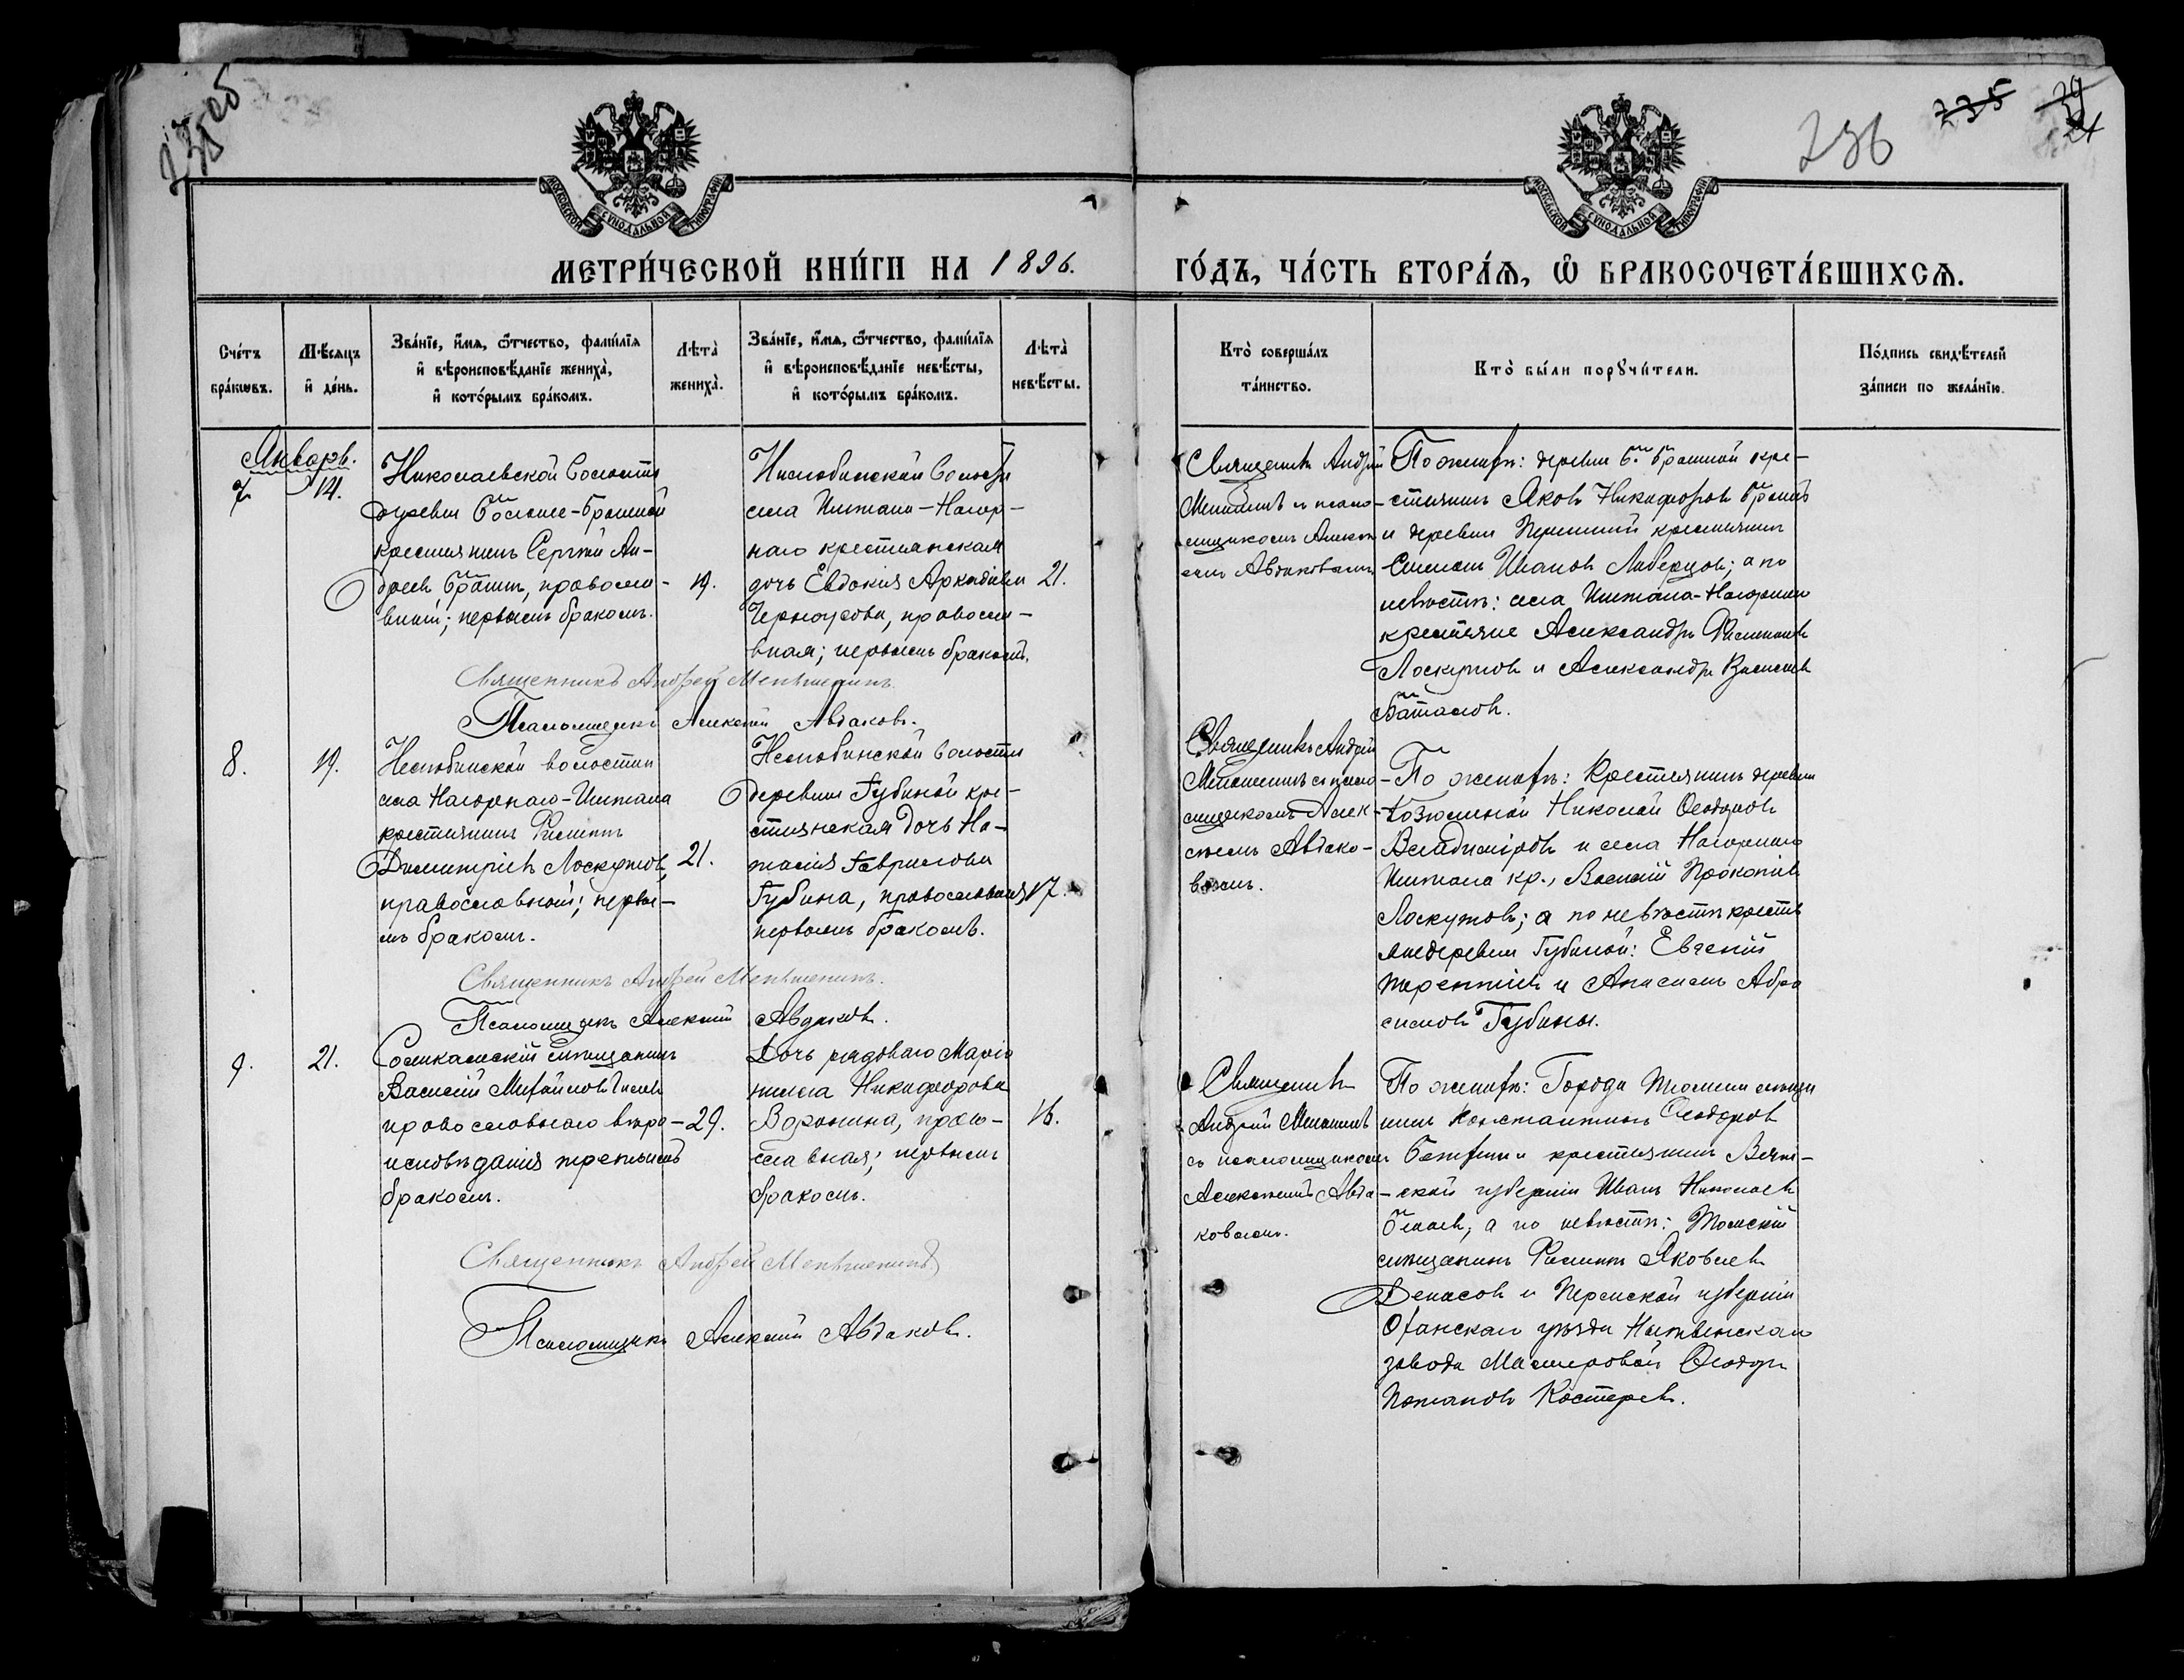 235 об
236
235
МОСКОВСКОЙ СѴНОДАЛЬНОЙ ТИПОГРАФІИ
МОСКОВСКОЙ СѴНОДАЛЬНОЙ ТИПОГРАФІИ
МЕТРИ́ЧЕСКОЙ КНИ́ГИ НА 1896.
ГО́ДЪ, ЧА́СТЬ ВТОРА́Ѧ, Ѡ҆ БРАКОСОЧЕТА́ВШИХСѦ.
Сче́тъ
бра́кѡвъ.
Мѣ́сяцъ
и҆ де́нь.
Зва́нїе, и҆́мѧ, ѻ҆́тчество, фами́лїѧ
и҆ вѣроисповѣ́данїе жениха̀,
и҆ кото́рымъ бра́комъ.
Лѣта̀
жениха̀.
Зва́нїе, и҆́мѧ, ѻ҆́тчество, фами́лїѧ
и҆ вѣроисповѣ́данїе невѣ́сты,
и҆ кото́рымъ бра́комъ.
Лѣта̀
невѣ́сты.
Кто̀ соверша́лъ
та́инство.
Кто̀ бы́ли порꙋчи́тели.
По́дпись свидѣ́телей
за́писи по жела́нїю.
Январь.
7. 14.
Николаевской волости
деревни Больше-Брашной
крестьянинъ Сергій Ан-
дреевъ, правосла-
вный; первымъ бракомъ.
19.
Нелюбинской волости
села Иштана-Нагор-
наго крестьянская
дочь Евдокія Аркадіева
Черноусова, правосла-
вная; первымъ бракомъ.
21.
Священникъ Андрей
Меньшенинъ и псало-
мщикомъ Алексѣ
емъ Авдаковымъ
По женихѣ: деревни кре-
стьянинъ Яковъ Никифоровъ
и деревни крестьянинъ
Иванов; а по
невѣстѣ: села Иштана-Нагорнаго
крестьяне Александръ Филиповъ
Лоскутовъ и Александръ Васильевъ
Баталовъ.
Священникъ Андрей Меньшенинъ.
Псаломщикъ Алексій Авдаковъ.
8. 19.
Нелюбинской волости
села Нагорнаго-Иштана
крестьянинъ Филиппъ
Димитріевъ Лоскутовъ,
православный; первы-
мъ бракомъ.
21.
Нелюбинской волости
деревни Губиной кре-
стьянская дочь На-
талія Гаврилова
Губина, православная,
первымъ бракомъ.
17.
Священникъ Андрей
Меньшенинъ съ псало-
мщикомъ Алек-
сѣемъ Авдако-
вымъ.
По женихѣ: Крестьянинъ деревни
Козюлиной Николай Ѳеодоровъ
Владиміровъ и села Нагорнаго
Иштана кр., Василій Прокопіевъ
Лоскутовъ; а по невѣстѣ крестья
не деревни Губиной: Евгеній
Терентіевъ и Абро
симовъ Губины.
Священникъ Андрей Меньшенинъ.
Псаломщикъ Алексій Авдаковъ.
9. 21.
Соликамскій мѣщанинъ
Василій Михайловъ
православнаго вѣро-
исповѣданія третьимъ
бракомъ.
29.
Дочь рядоваго Марія
Никифорова
Воронина, право-
славная; первымъ
бракомъ.
16.
Священникъ
Андрей Меньшенинъ
съ псаломщикомъ
Алексѣемъ Авда-
ковымъ.
По женихѣ: Города Тюмени мѣща
нинъ Константинъ Ѳеодоровъ
и крестьянинъ Вятс-
кой губерніи Иванъ Николаевъ
а по невѣстѣ: Томскій
мѣщанинъ Филиппъ Яковлевъ
Денисовъ и Пермской губерніи
Оханскаго уѣзда Нытвенскаго
завода Мастеровой Ѳеодоръ
Потаповъ Костаревъ.
Священникъ Андрей Меньшенинъ
Псаломщикъ Алексій Авдаковъ.